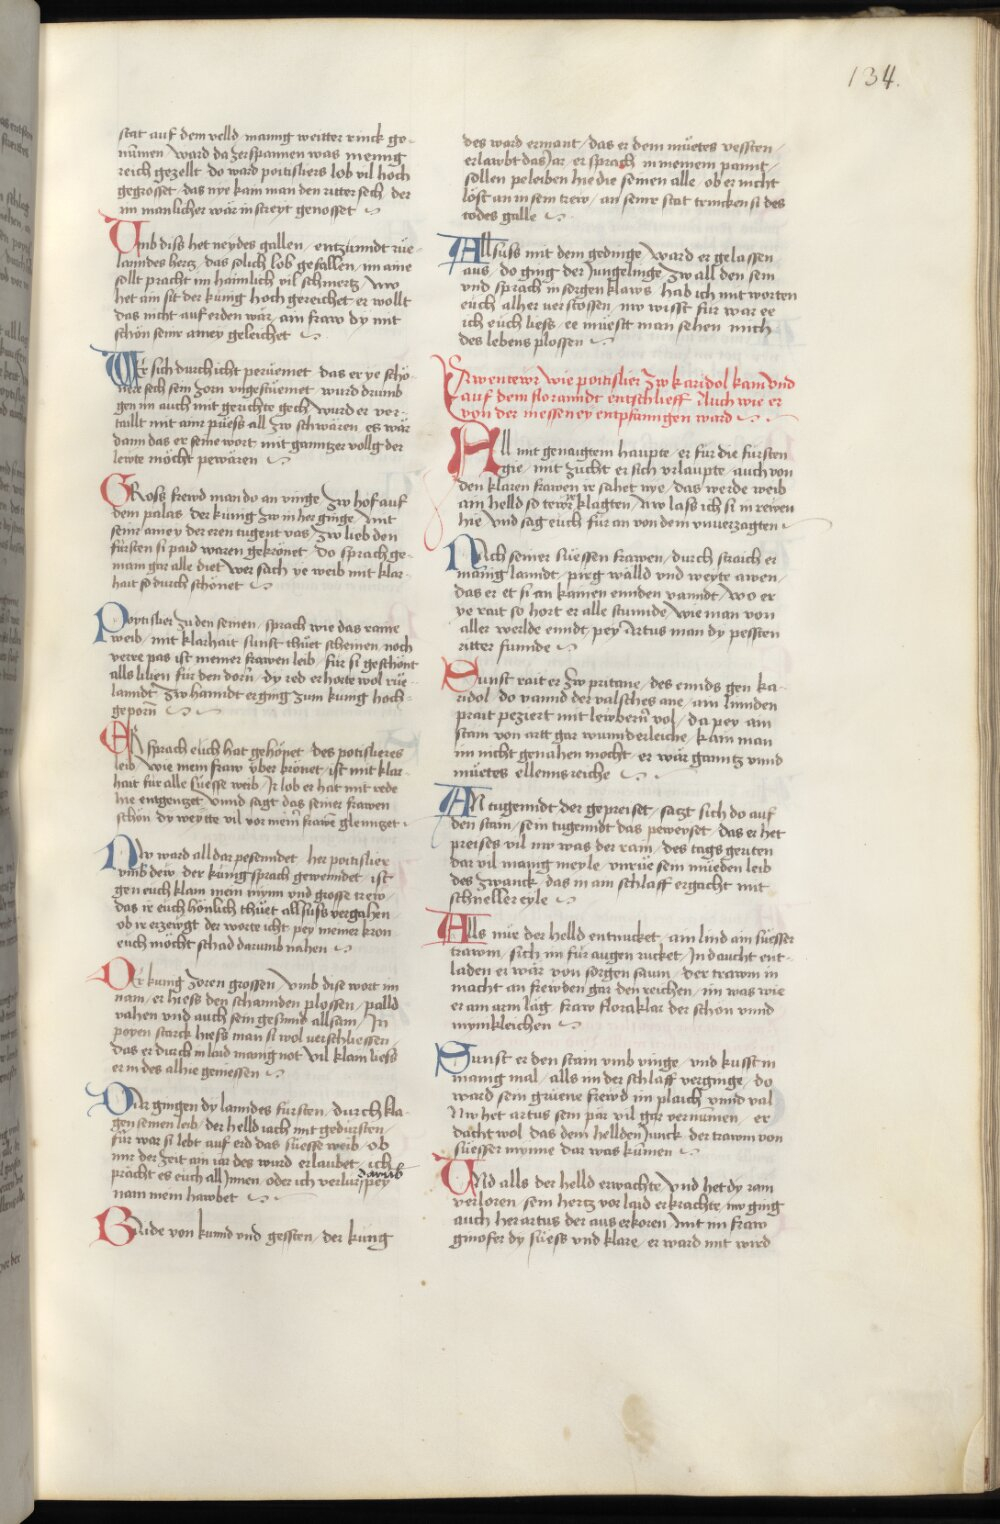 134.
stat auf dem velld / manig weitter rinck ge-
nūmen Ward da zerspannen was menig
reich gezellt do ward poitisliers lob vil hoch
gegrosset / das nye kam man den ritter sech / der
im manlicher wär in streyt genosset
Umb diss het neydes gallen / entzünndt rüe-
lanndes hertz / das solich lob gefallen / im aine
sollt pracht im haimlich vil schmertz / Wo
het ain sit der künig hoch gereichet er wollt
das nicht auf erden wär / ain fraw dy mit
schön seinr amey geleichet
Wer sich durch icht perüemet das er ye schö-
nere sech sein zorn ungestüemet wurd drumb
gen im auch mit gerichte gech / Wurd er ver-
taillt mit ainr püess all zw schwären es wär
dann das er seine wort mit ganntzer vollg der
lewte möcht pewären
Gross frewd man do an vinge / zw hof auf
dem palas der künig zw in her ginge / mit
seinr amey der eren tugent vas / zw lieb den
fürsten si paid waren gekrönet / Do sprach ge-
main gar alle diet / wer sach ye weib mit klar-
hait so durch schönet
Poytislier zu den seinen / sprach wie das raine
weib / mit klarhait sunst thüet scheinen / noch
verre pas ist meiner frawen leib / für si geschönt
alls lilien für den dorn / dy red erhorte wol rüe-
lanndt / zw hanndt er ging zum künig hoch-
geporn
Er sprach euch hat gehönet / des potislieres
leib / wie mein fraw über krönet / ist mit klar-
hait für alle süesse weib / Ir lob er hat mit rede
hie entgenzet / unnd sagt das seiner frawen
schön / dy weytte vil vor meinr frawē glenntzet
Nw ward all dar pesenndet her poitislier
umb dew / der künig sprach gewenndet / ist
gen euch klam mein mynn und grosse trew
das ir euch hönlich thüet allsuss vergahen
ob ir erzewgt der worte icht / pey meiner kron
euch möcht schad darumb nahen
Der küng zoren grossen / umb dise wort im
nam / er hiess den schannden plossen / palld
vahen und auch sein gesinnd allsam / In
poyen starck hiess man si wol verschliessen
das er durch in laid manig not / vil klam liess
er in des alhie geniessen
Dar gingen dy lanndes fürsten / durch kla-
gen seinen leib / der helld iach mit gedürsten
für war si lebt auf erd das süesse weib / ob
mir der zeit ain iar des wurd erlaubet / ich
prächt es euch all Innen / oder ich verlur darumb pey
nam mein hawbet
Baide von kunnd und gessten / der küng
des ward ermant / das er dem müetes vessten
erlawbt das Jar / er sprach in meinem pannt
sollen peleiben hie die seinen alle / ob er nicht
löst an in sein trew / an seinr stat trincken si des
todes galle
Allsuss mit dem gedinge / ward er gelassen
aus / do ging der Jungelinge / zw all den sein
und sprach in sorgen klaws / hab ich mit worten
euch alher verstossen / nw wisst für war ee
ich euch liess / ee müesst man sehen mich
des lebens plossen
Awentewr wie poitislier zw karidol kam und
auf dem floranndt entschlieff Auch wie er
von der messeney entpfanngen ward
All mit genaigtem haupte / er für die fürsten
gie / mit zucht er sich urlaupte / auch von
den klaren frawen ir sahet nye / das werde weib
ain helld so tewrē klagten / Nw lass ich si in rewen
hie / und sag euch für an von dem unuerzagten
Nach seiner süessen frawen / durch straich er
manig lanndt / pirg walld und weyte awen
das er et si an kainen ennden vanndt / wo er
ye rait so hort er alle stunnde / wie man von
aller werlde enndt / pey Artus man dy pessten
ritter funnde
Sunst rait er zw pritane / des ennds gen ka-
ridol / do vannd der valsches ane / ain linnden
prait peziert mit lewbern vol / da pey ain
stain von artt gar wunnderleiche / kam man
im nicht genahen mocht / er wär ganntz unnd
müetes ellenns reiche
An tugenndt der gepreiset / satzt sich do auf
den stain / sein tugenndt das peweyset / das er het
preises vil nw was der ram / des tags geriten
dar vil manig meyle / unrüe sein müeden leib
des zwanck / das in ain schlaff ergacht mit
schneller eyle
Alls nue der helld entnucket / ain lind ain süesser
trawm / sich im für augen rucket / In daucht ent-
laden er wär von sorgen saum / der trawm in
macht an frewden gar den reichen / im was wie
er am arm läg / fraw floraklar der schon unnd
mynnkleichen
Sunst er den stain umb vinge / und kusst in
manig mal / alls im der schlaff verginge / do
ward sein grüene frewd im plaich unnd val
Nw het artus sein par vil gar vernūmen / er
dacht wol das dem hellden Junck / der trawm von
süesser mynne dar was kūmen
Und alls der helld erwachte / und het dy rain
verloren / sein hertz vor laid erkrachte / nw ging
auch her artus der aus erkoren / Mit im fraw
ginofer dy süess und klare / er ward mit wird